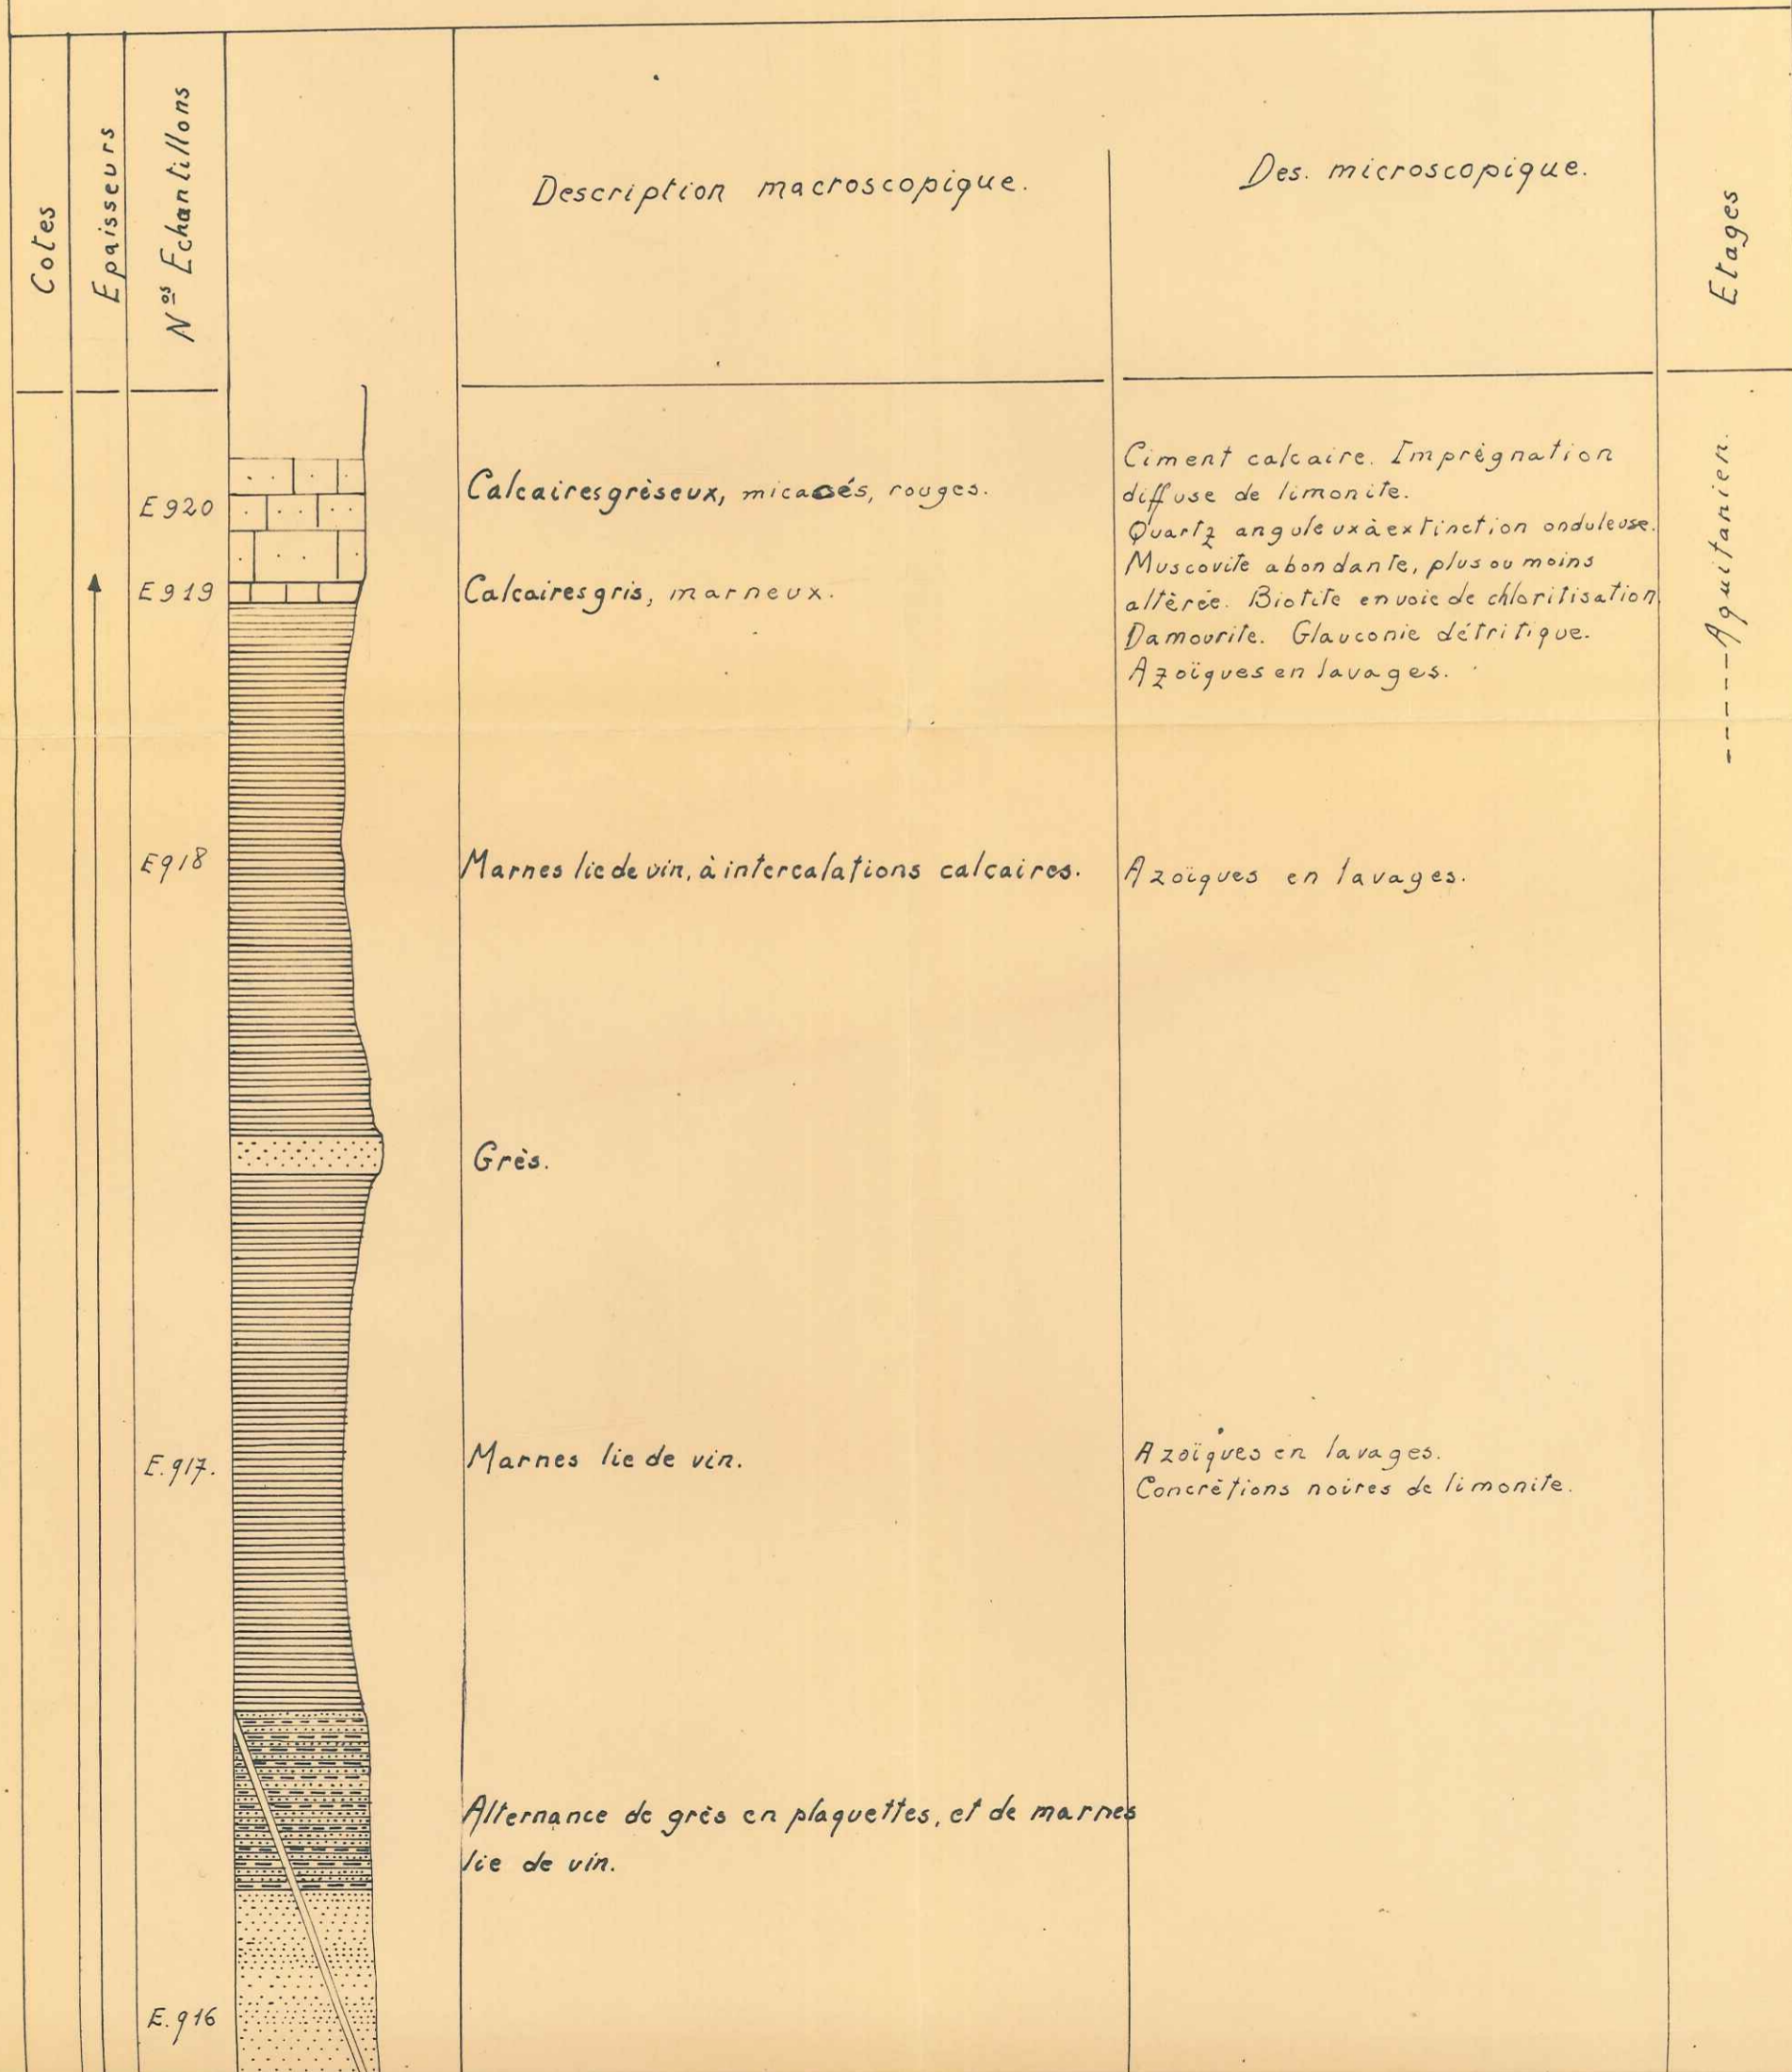 Cotes
Epaisseurs
Nos Echantillons
Description macroscopique.
Des. microscopique.
Etages
E920
Calcaires grèseux, micacés, rouges.
Ciment calcaire. Imprègnation
diffuse de limonite.
Quartz anguleux à extinction onduleuse.
Muscovite abondante, plus ou moins
altèrée. Biotite en voie de chloritisation.
Damourite. Glauconie détritique.
Azoïques en lavages.
E919
Calcaires gris, marneux.
-----Aquitanien.
E918
Marnes lie de vin, à intercalations calcaires.
Azoïques en lavages.
Grès.
E.917.
Marnes lie de vin.
Azoïques en lavages.
Concrètions noires de limonite.
Alternance de grès en plaquettes, et de marnes
lie de vin.
E.916